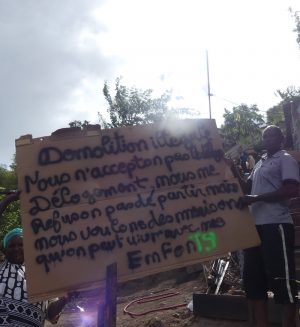 Demolition illegal
Nous n'accepton pas
Délogement nous ne
Refuson pa dé partir mais
nous voulons des maison
qu'on peut vivre avec nos
EnFonts